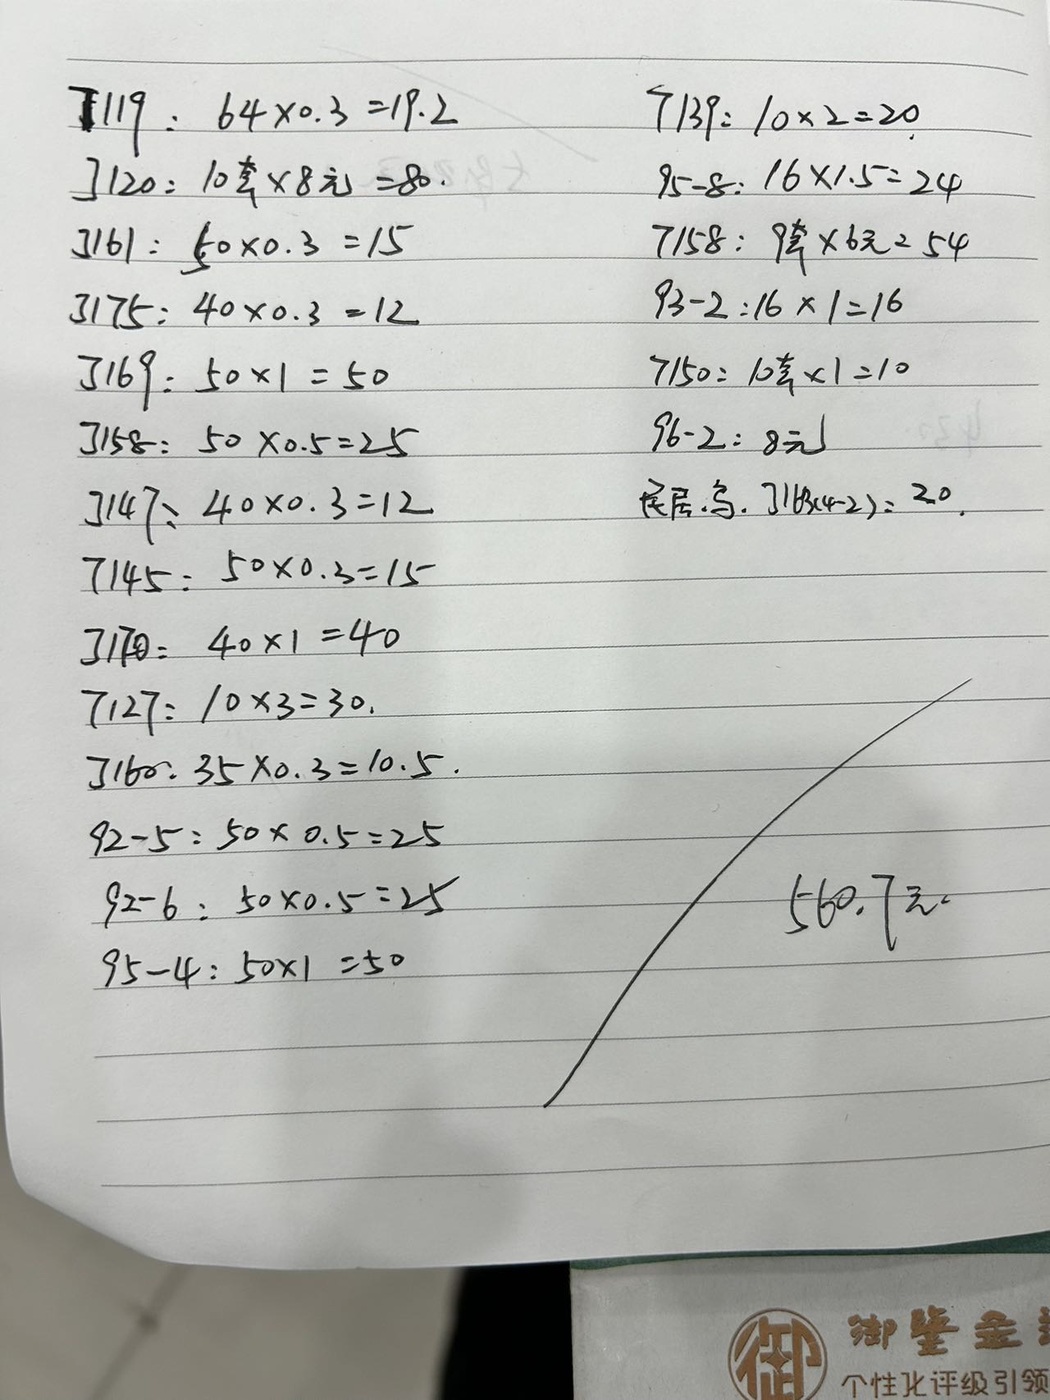 J119: 64×0.3=19.2
J120: 10套×8元=80.
J161: 50×0.3=15
J175: 40×0.3=12
J169: 50×1=50
J158: 50×0.5=25
J147: 40×0.3=12
T145: 50×0.3=15
J170: 40×1=40
T127: 10×3=30.
J160: 35×0.3=10.5.
92-5: 50×0.5=25
92-6: 50×0.5=25
95-4: 50×1=50
T139: 10×2=20.
95-8: 16×1.5=24
T158: 9套×6元=54
93-2: 16×1=16
T150: 10套×1=10
96-2: 8元
民居.鸟. J163(4-2): 20.
560.7元.
御鉴金
个性化评级引领